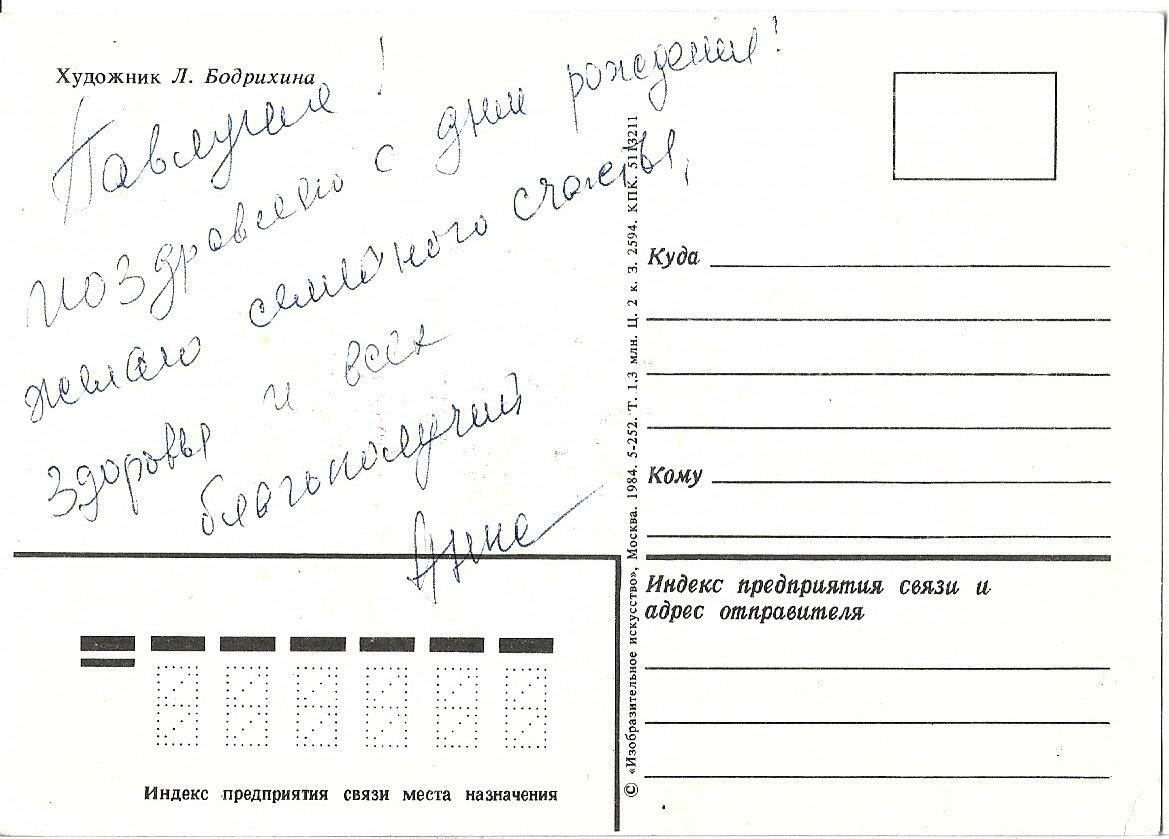 Художник Л. Бодрихина
Павлуша!
поздравляю с днем рождения!
желаю семейного счастья,
здоровья и всех
благополучий
Анна
Куда
Кому
Индекс предприятия связи и
адрес отправителя
Индекс предприятия связи места назначения
© «Изобразительное искусство», Москва. 1984. 5-252. Т. 1,3 млн. Ц. 2 к. З. 2594. КПК. 5113211